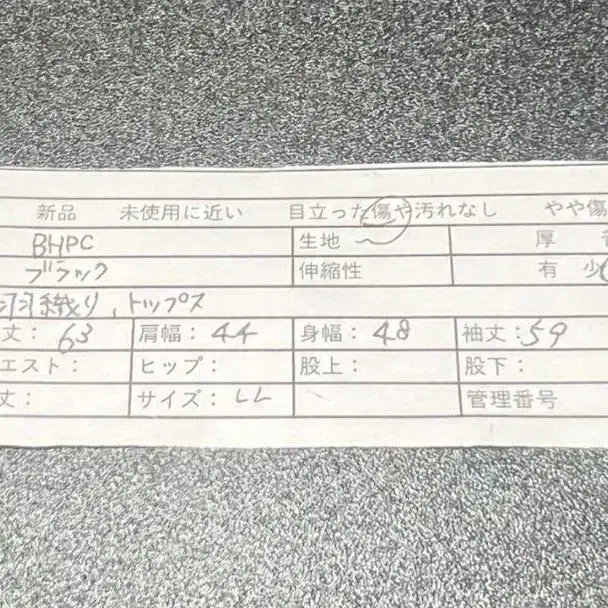 新品 未使用に近い 目立った傷や汚れなし やや傷
BHPC 生地 厚
ブラック 伸縮性 有 少
羽織り、トップス
丈: 63 肩幅: 44 身幅: 48 袖丈: 59
エスト: ヒップ: 股上: 股下:
丈: サイズ: LL 管理番号